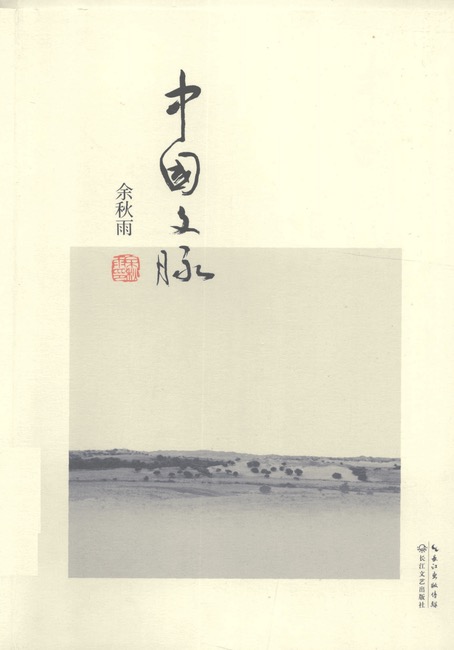 中國文脉
余秋雨
长江出版传媒
长江文艺出版社